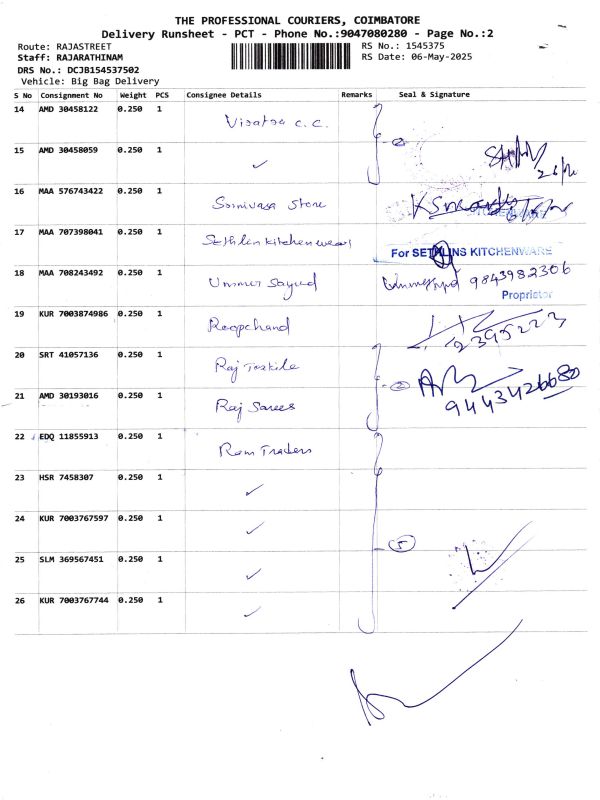 THE PROFESSIONAL COURIERS, COIMBATORE
Delivery Runsheet - PCT - Phone No.:9047080280 - Page No.:2
Route: RAJASTREET
Staff: RAJARATHINAM
DRS No.: DCJB154537502
Vehicle: Big Bag Delivery
RS No.: 1545375
RS Date: 06-May-2025
S No Consignment No Weight PCS Consignee Details Remarks Seal & Signature
14 AMD 30458122 0.250 1 C.C.
15 AMD 30458059 0.250 1 ✓
16 MAA 576743422 0.250 1 Srinivasa Store
17 MAA 707398041 0.250 1 Sethlin kitchen wear For SETHLINS KITCHENWARE
18 MAA 708243492 0.250 1 Ummer Sayud 9843982306
Proprietor
19 KUR 7003874986 0.250 1 Roopchand 2395223
20 SRT 41057136 0.250 1 Raj Textile 2
21 AMD 30193016 0.250 1 Raj Sarees 9443426680
22 EDQ 11855913 0.250 1 Ram Traders
23 HSR 7458307 0.250 1 ✓
24 KUR 7003767597 0.250 1 ✓
5
25 SLM 369567451 0.250 1 ✓
26 KUR 7003767744 0.250 1 ✓